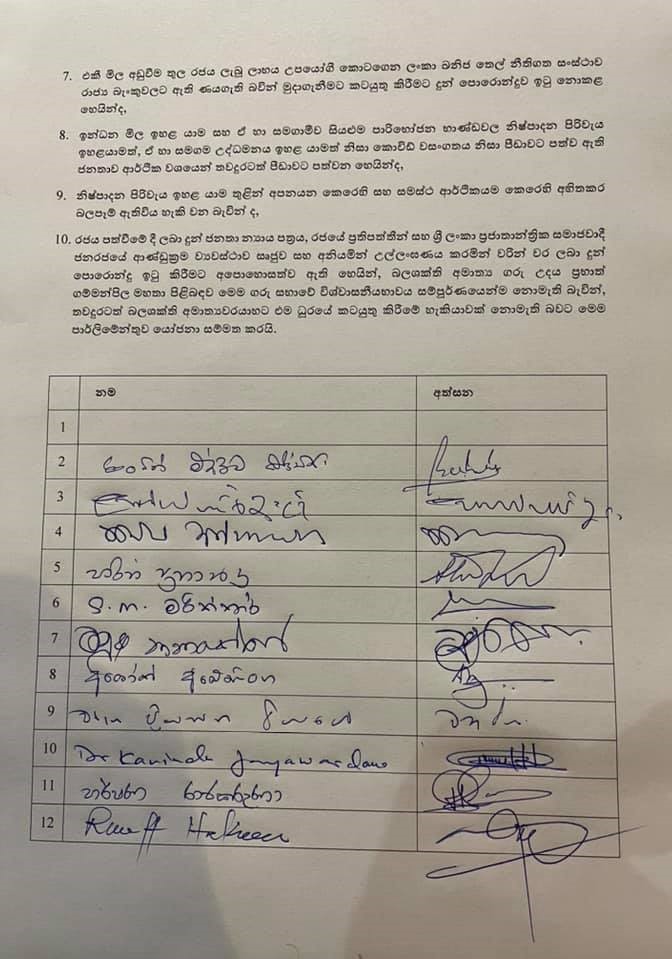 7. එකී මිල අඩුවීම තුල රජය ලැබූ ලාභය උපයෝගී කොටගෙන ලංකා ඛනිජ තෙල් නීතිගත සංස්ථාව
රාජ්‍ය බැංකුවලට ඇති ණයගැති බවින් මුදාගැනීමට කටයුතු කිරීමට දුන් පොරොන්දුව ඉටු නොකළ
හෙයින්ද,
8. ඉන්ධන මිල ඉහළ යාම සහ ඒ හා සමගාමීව සියළුම පාරිභෝජන භාණ්ඩවල නිෂ්පාදන පිරිවැය
ඉහළයාමත්, ඒ හා සමගම උද්ධමනය ඉහළ යාමත් නිසා කොවිඩ් වසංගතය නිසා පීඩාවට පත්ව ඇති
ජනතාව ආර්ථික වශයෙන් තවදුරටත් පීඩාවට පත්වන හෙයින්ද,
9. නිෂ්පාදන පිරිවැය ඉහළ යාම තුළින් අපනයන කෙරෙහි සහ සමස්ථ ආර්ථිකයම කෙරෙහි අහිතකර
බලපෑම් ඇතිවිය හැකි වන බැවින් ද,
10. රජය පත්වීමේ දී ලබා දුන් ජනතා න්‍යාය පත්‍රය, රජයේ ප්‍රතිපත්තීන් සහ ශ්‍රී ලංකා ප්‍රජාතාන්ත්‍රික සමාජවාදී
ජනරජයේ ආණ්ඩුක්‍රම ව්‍යවස්ථාව සෘජුව සහ අනියමින් උල්ලංඝණය කරමින් වරින් වර ලබා දුන්
පොරොන්දු ඉටු කිරීමට අපොහොසත්ව ඇති හෙයින්, බලශක්ති අමාත්‍ය ගරු උදය ප්‍රභාත්
ගම්මන්පිල මහතා පිළිබඳව මෙම ගරු සභාවේ විශ්වාසනීයභාවය සම්පූර්ණයෙන්ම නොමැති බැවින්,
තවදුරටත් බලශක්ති අමාත්‍යවරයාහට එම ධූරයේ කටයුතු කිරීමේ හැකියාවක් නොමැති බවට මෙම
පාර්ලිමේන්තුව යෝජනා සම්මත කරයි.
නම අත්සන
1
2
3
4
5 හරින් ප්‍රනාන්දු
6 S.M. මරික්කාර්
7
8 අශෝක් අබේසිංහ
9
10 Dr Kavinda Jayawardana
11
12 Rauff Hakeem